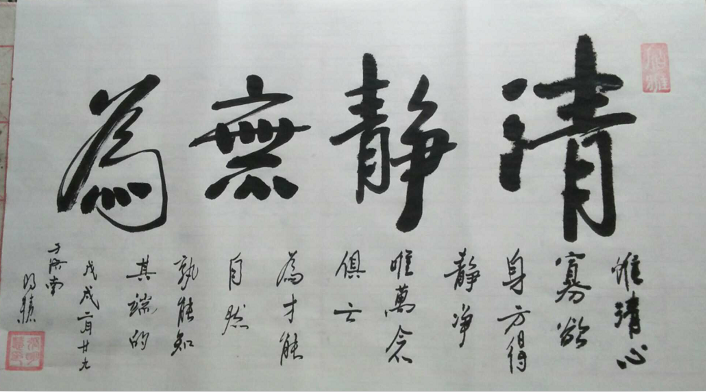 清靜無為
惟清心
寡欲
身方得
静净
唯萬念
俱亡
為才能
自然
孰能知
其端的
戊戌二月廿九
于济南